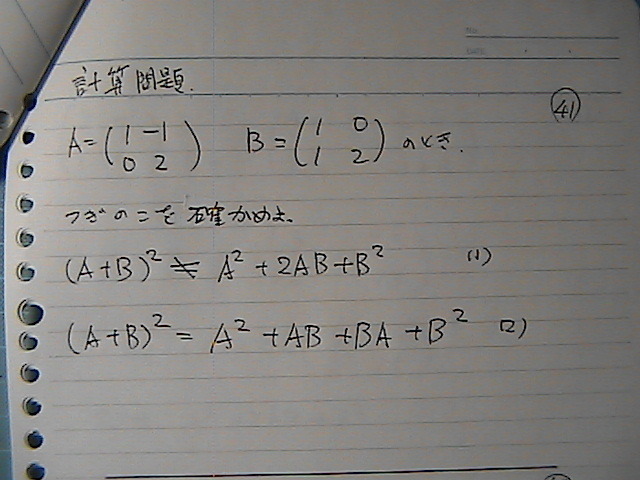 計算問題.
41
A = ( 1 -1 0 2 ) B = ( 1 0 1 2 ) のとき.
つぎのこを確かめよ.
(A+B)² ≠ A² + 2AB + B² (1)
(A+B)² = A² + AB + BA + B² (2)